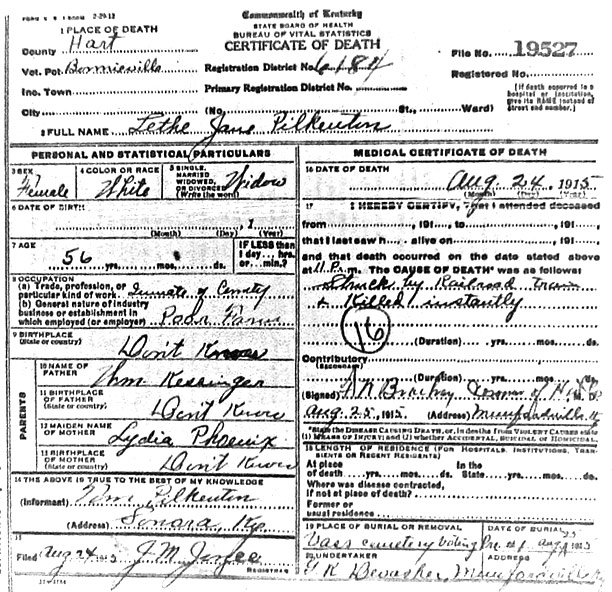 2-29-12
Commonwealth of Kentucky
STATE BOARD OF HEALTH
BUREAU OF VITAL STATISTICS
CERTIFICATE OF DEATH
1 PLACE OF DEATH
County Hart
Vot. Pct. Bonnieville
Inc. Town
City
Registration District No. 6184
Primary Registration District No.
(No. St., Ward)
File No. 19527
Registered No.
[If death occurred in a
hospital or institution,
give its NAME instead of
street and number.]
2 FULL NAME Lethe Jane Pilkenton
PERSONAL AND STATISTICAL PARTICULARS
3 SEX Female
4 COLOR OR RACE White
5 SINGLE, MARRIED WIDOWED, OR DIVORCED (Write the word) Widow
6 DATE OF BIRTH , 1
(Month) (Day) (Year)
7 AGE
56 yrs. mos. ds.
IF LESS than
1 day... hrs.
or... min.?
8 OCCUPATION
(a) Trade, profession, or
particular kind of work Inmate of County
(b) General nature of industry
business or establishment in
which employed (or employer) Poor Farm
9 BIRTHPLACE
(State or country) Don't Know
PARENTS
10 NAME OF
FATHER Wm Kessinger
11 BIRTHPLACE
OF FATHER
(State or country) Don't Know
12 MAIDEN NAME
OF MOTHER Lydia Phoenix
13 BIRTHPLACE
OF MOTHER
(State or country) Don't Know
14 THE ABOVE IS TRUE TO THE BEST OF MY KNOWLEDGE
(Informant) Wm Pilkenton
(Address) Sonora, Ky.
15
Filed Aug 24 1915 J. M.
REGISTRAR
MEDICAL CERTIFICATE OF DEATH
16 DATE OF DEATH
Aug 24, 1915
(Month) (Day) (Year)
17 I HEREBY CERTIFY, That I attended deceased
from , 191 , to , 191 ,
that I last saw h alive on , 191 ,
and that death occurred on the date stated above
at 11 P.m. The CAUSE OF DEATH* was as follows:
Struck by Railroad train
& Killed instantly
16
(Duration) yrs. mos. ds.
Contributory
(SECONDARY)
(Duration) yrs. mos. ds.
(Signed)
Aug 25, 1915 (Address) Munfordville Ky
*State the DISEASE CAUSING DEATH, or, in deaths from VIOLENT CAUSES state
(1) MEANS OF INJURY; and (2) whether ACCIDENTAL, SUICIDAL or HOMICIDAL.
18 LENGTH OF RESIDENCE (FOR HOSPITALS, INSTITUTIONS, TRANSIENTS OR RECENT RESIDENTS)
At place In the
of death yrs. mos. ds. State yrs. mos. ds.
Where was disease contracted,
if not at place of death?
Former or
usual residence
19 PLACE OF BURIAL OR REMOVAL DATE OF BURIAL
cemetery Voting Pre #1 Aug 25 1915
20 UNDERTAKER ADDRESS
Devasher, Munfordville Ky